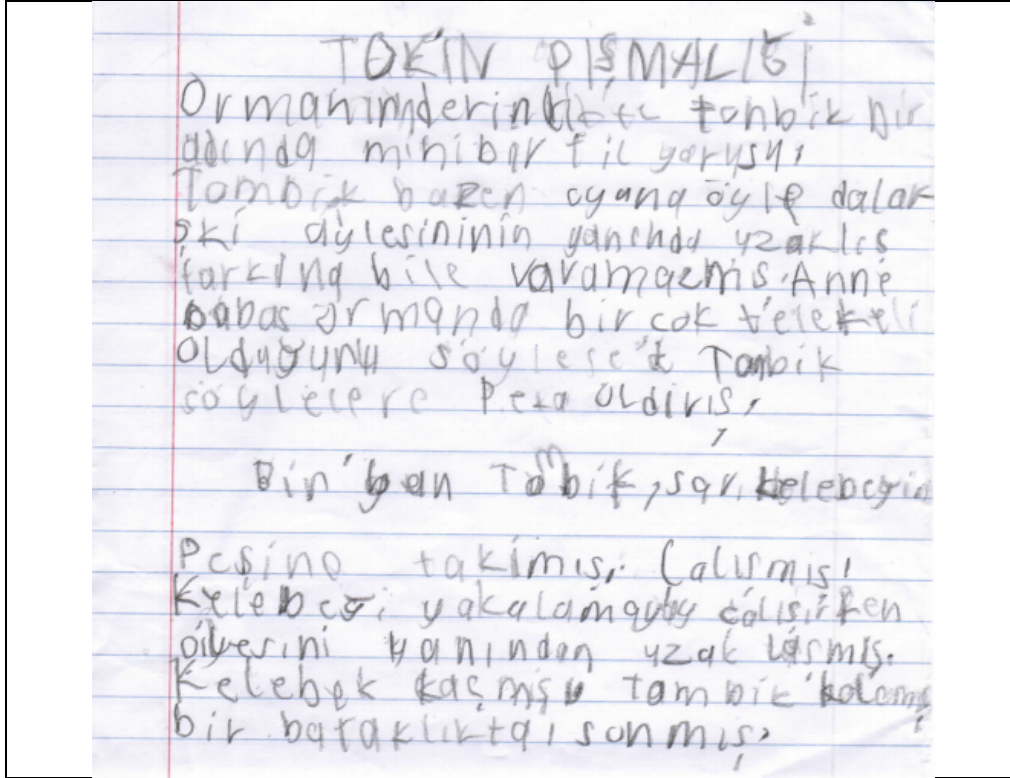 TOKİN PİŞMALIĞI
Ormanımderinkte tonbik bir
adında minibar fil yaruşyı
Tombik bazen oyuna öyle dalar
şki aylesininin yanında uzaklıs
farkına bile varamazmıs. Anne
babas ormanda bir cok telekeli
olduğunu söylese't Tombik
söylelere Peka oldiriş,
Bin'gan Tombik, sarı kelebeğin
Peşine takimış, Çalısmış!
Kelebeği yakalamayuy çalışırken
yanından uzak laşmış.
Kelebek kaçmış tambik
bir bataklıkta sonmış,